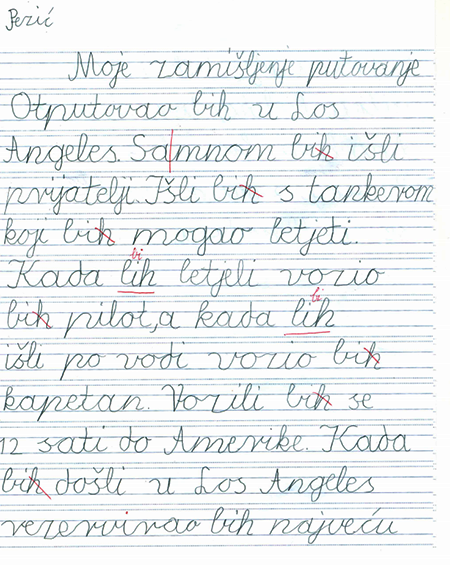 Perić
Moje zamišljenje putovanje
Otputovao bih u Los
Angeles. Samnom bih išli
prijatelji. Išli bih s tankerom
koji bih mogao letjeti.
bi
Kada lih letjeli vozio
bi
bih pilot, a kada lih
išli po vodi vozio bih
kapetan. Vozili bih se
12 sati do Amerike. Kada
bih došli u Los Angeles
rezervirao bih najveću